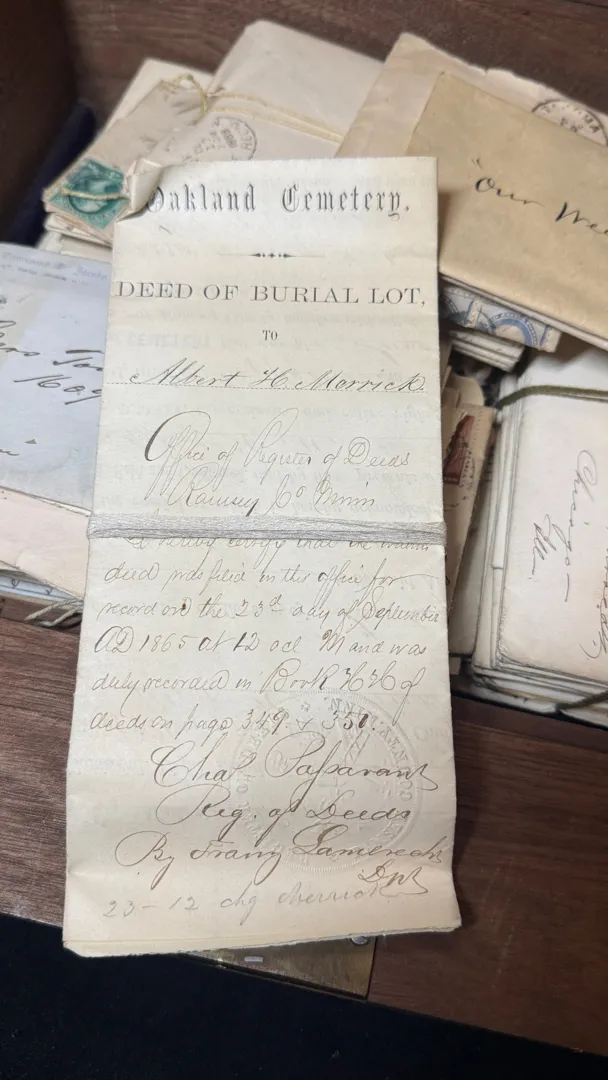 Oakland Cemetery.
DEED OF BURIAL LOT,
TO
Albert H. Merrick.
Office of Register of Deeds
Ramsey Co Minn
I hereby certify that the within
deed was filed in this office for
record on the 23d day of September
AD 1865 at 12 ocl M and was
duly recorded in Book HH of
deeds on page 349 & 350.
Chas Passavant
Reg. of Deeds
By Franz
Dpt
23-12 chg Merrick
"Our We
Chicago
Ills